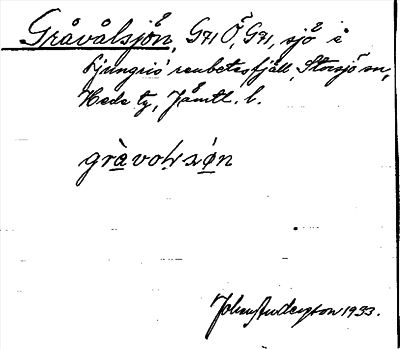 Gråvålsjön, G71Ö, G71, sjö i
Ljungris' renbetesfjäll, Storsjö sn,
Hede tg, Jämtl. l.
gràvoḷsøn
John Anderzon 1933.